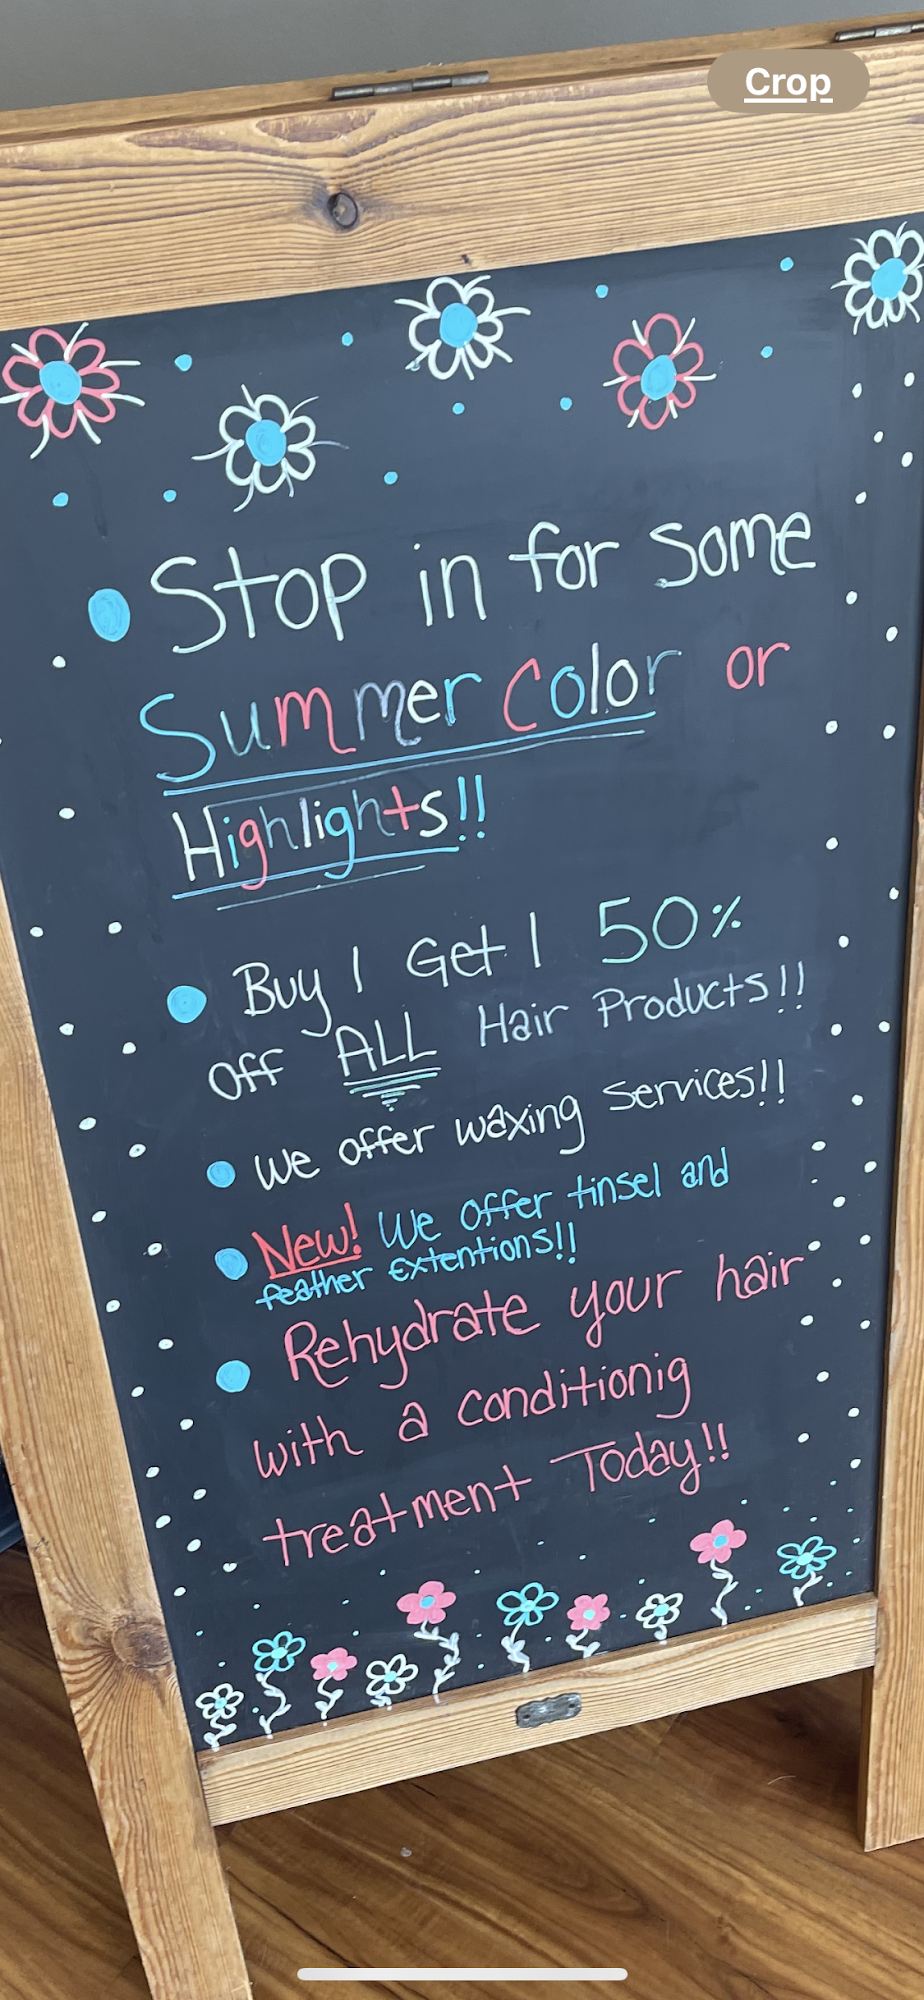 Crop
Stop in for some
Summer Color or
Highlights!!
Buy 1 Get 1 50%
off ALL Hair Products!!
we offer waxing services!!
New! We offer tinsel and
feather extentions!!
Rehydrate your hair
with a conditionig
treatment Today!!